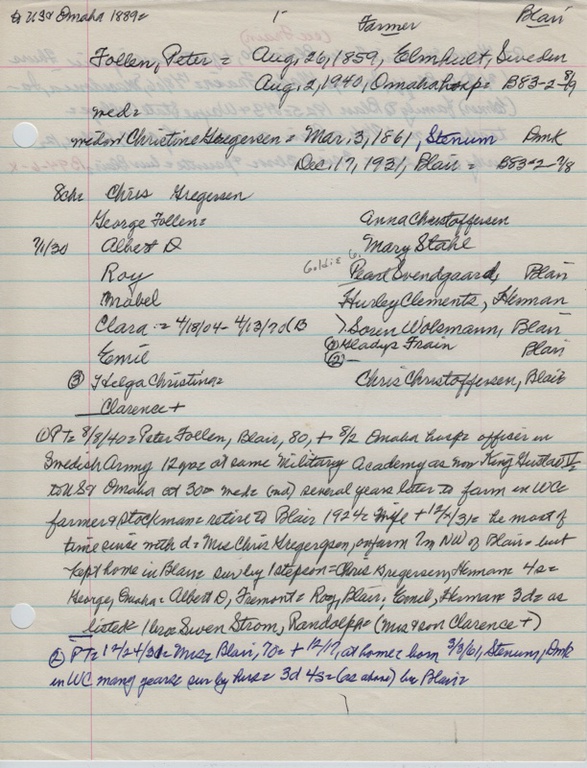 to USA Omaha 1889= 1- Farmer Blair
Follen, Peter = Aug, 26, 1859, Elmhult, Sweden
Aug, 2, 1940, Omaha hosp= B83-2-8/9
med=
Christine Gregersen = Mar. 3, 1861, Stenum Dmk
Dec. 17, 1931, Blair = B83=2-7/8
8ch= Chris Gregersen
George Follen= Anna Christoffersen
7/1/30 Albert D Mary Stahl
Roy Goldie G. Pearl Svendgaard, Blair
Mabel Hurley Clements, Herman
Clara = 4/18/04- 4/13/70 (B) Soren Wolsmann, Blair
Emil ① Gladys Train Blair
② -
③ Helga Christina= Chris Christoffersen, Blair
Clarence +
① PT= 8/8/40= Peter Follen, Blair, 80, + 8/2 Omaha hosp= officer in
Swedish Army 12 yrs= at same Military Academy as now King Gustav V
to USA Omaha at 30= med= (nd) several years later to farm in WC=
farmer & stockman= retire to Blair 1924= wife + 12/31= he most of
time since with d= Mrs Chris Gregergson, on farm 7m NW of Blair= but
kept home in Blair= sur by 1 stepson= Chris Gregersen, Herman 4s=
George, Omaha= Albert D, Fremont= Roy, Blair, Emil, Herman 3d= as
listed= 1 bro= Swen Strom, Randolph= (Mrs & son Clarence +)
② PT= 12/24/31= Mrs= Blair, 70= + 12/17, at home= born 3/3/61, Stenum, Dmk
in WC many years= sur by hus= 3d 4s= (as above) bu Blair=